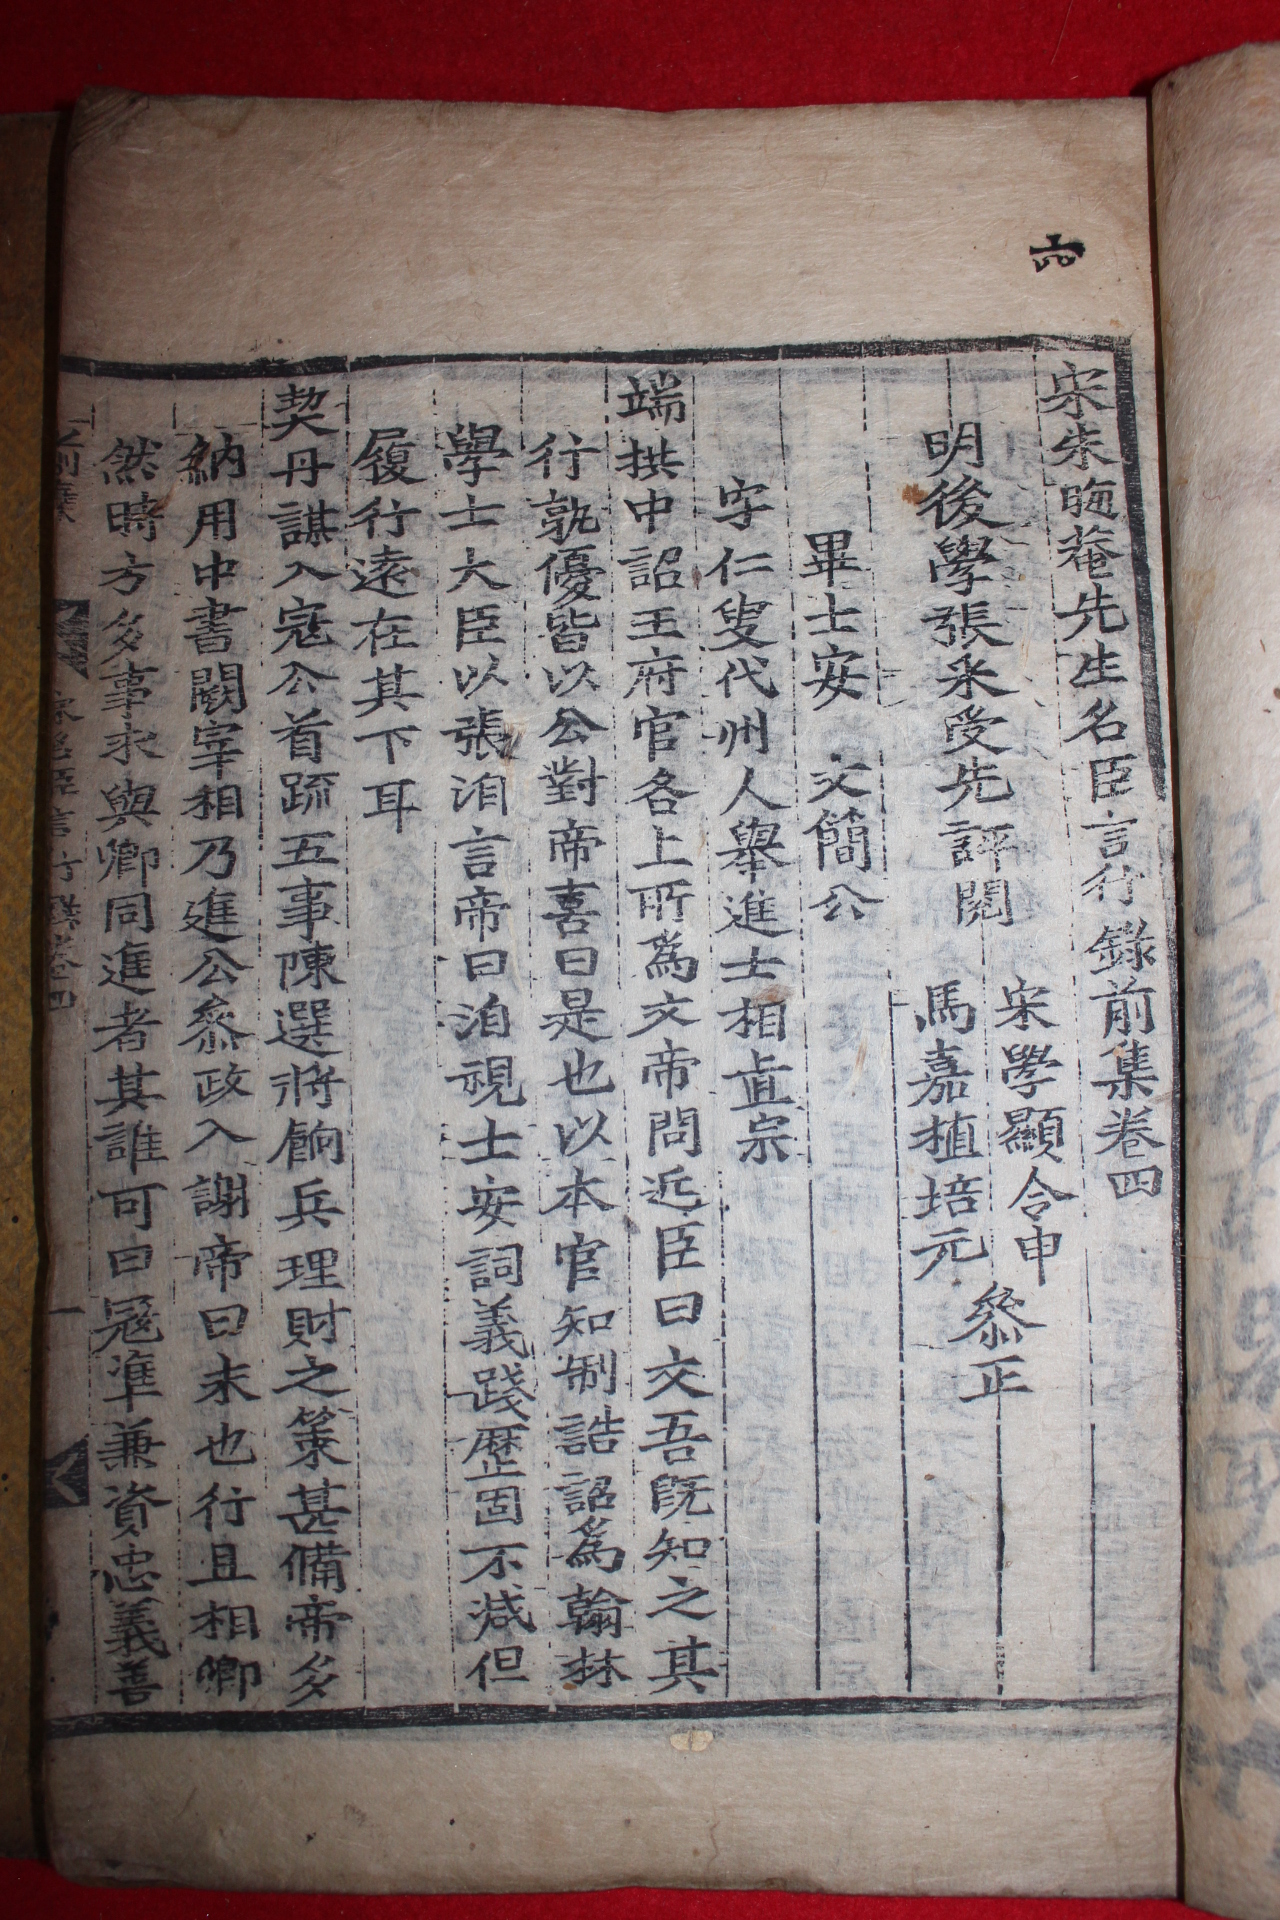 宋朱晦菴先生名臣言行錄前集卷四
宋學顯令申
明後學張采受先評閱
馬嘉植培元
叅正
畢士安 文簡公
字仁叟代州人舉進士相眞宗
端拱中詔王府官各上所爲文帝問近臣曰文吾旣知之其
行孰優皆以公對帝喜曰是也以本官知制誥詔爲翰林
學士大臣以張洎言帝曰洎視士安詞義踐歷固不減但
履行遠在其下耳
契丹謀入寇公首疏五事陳選將餉兵理財之策甚備帝多
納用中書闕宰相乃進公叅政入謝帝曰未也行且相卿
然時方多事求與卿同進者其誰可曰冦準兼資忠義善
宋名臣言行錄卷四
一